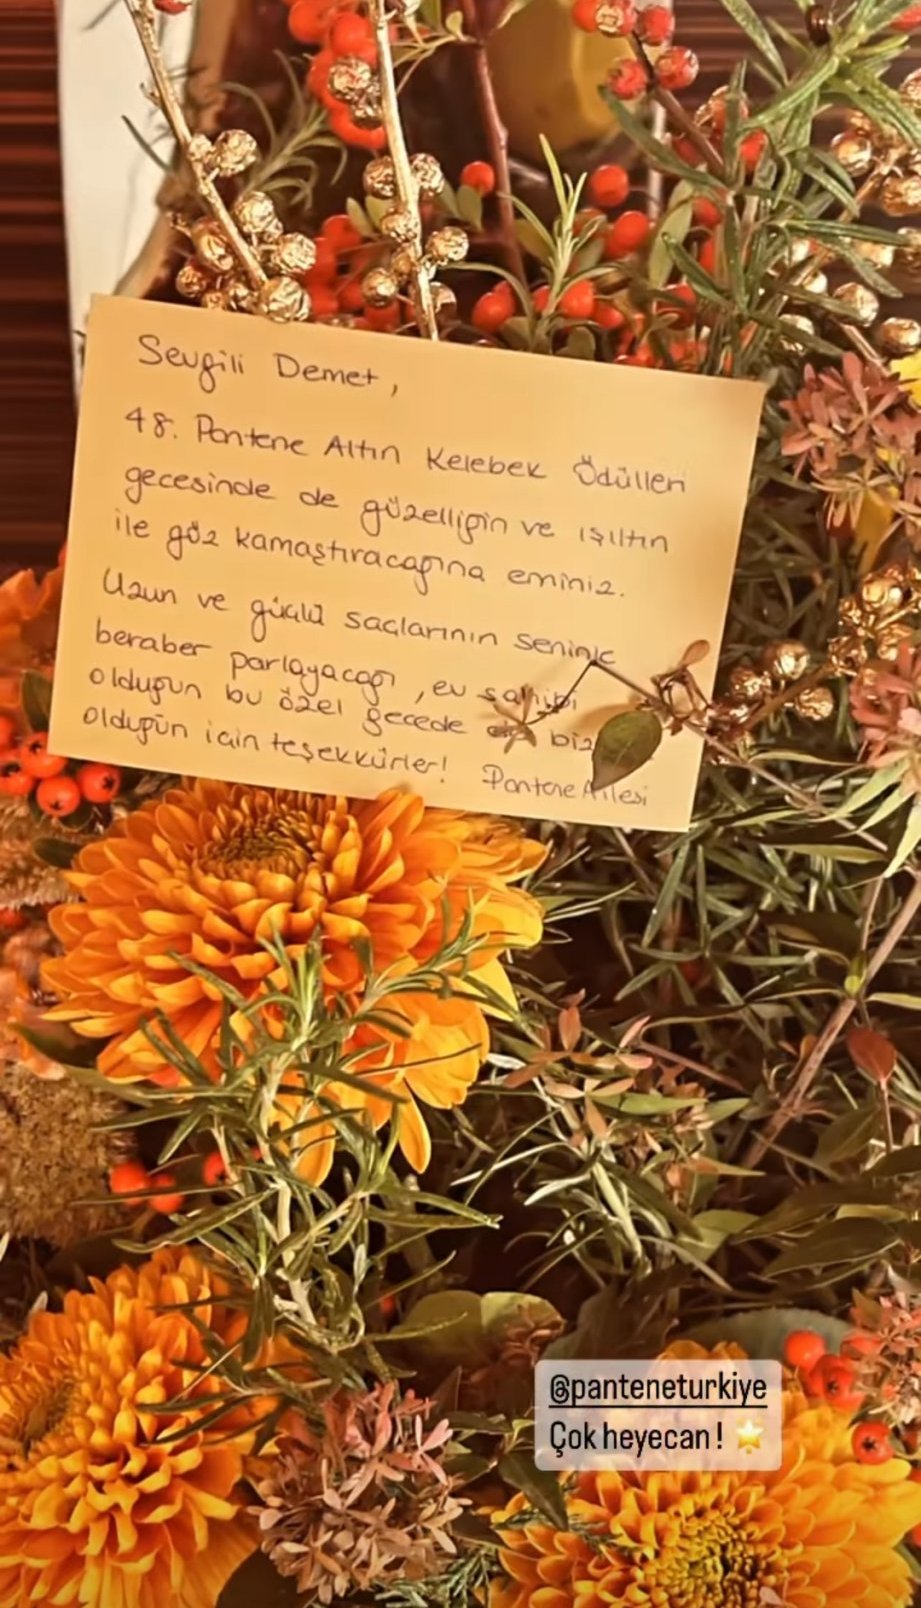 Sevgili Demet,
48. Pantene Altın Kelebek Ödülleri
gecesinde de güzelliğin ve ışıltın
ile göz kamaştıracağına eminiz.
Uzun ve güçlü saçlarının seninle
beraber parlayacağı, ev sahibi
olduğun bu özel gecede biz
olduğun için teşekkürler! Pantene Ailesi
@panteneturkiye
Çok heyecan!